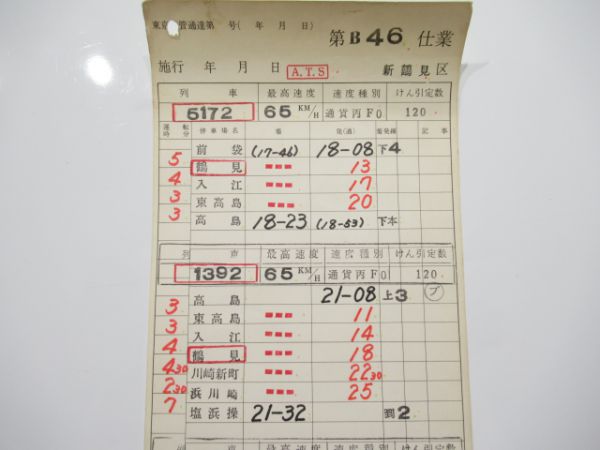 東京 管通達第 号( 年 月 日)
第 B46 仕業
施行 年 月 日 A.T.S 新鶴見区
列車 最高速度 速度種別 けん引定数
5172 65 KM/H 通貨丙F0 120
運転時分 停車場名 着 発(通) 着発線 記事
5 前袋 (17-46) 18-08 下4
4 鶴見 13
3 入江 17
3 東高島 20
高島 18-23 (18-53) 下本
列車 最高速度 速度種別 けん引定数
1392 65 KM/H 通貨丙F0 120
3 高島 21-08 上3 ブ
3 東高島 11
4 入江 14
4 30 鶴見 18
2 30 川崎新町 22 30
7 浜川崎 25
塩浜操 21-32 到2
列車 最高速度 速度種別 けん引定数